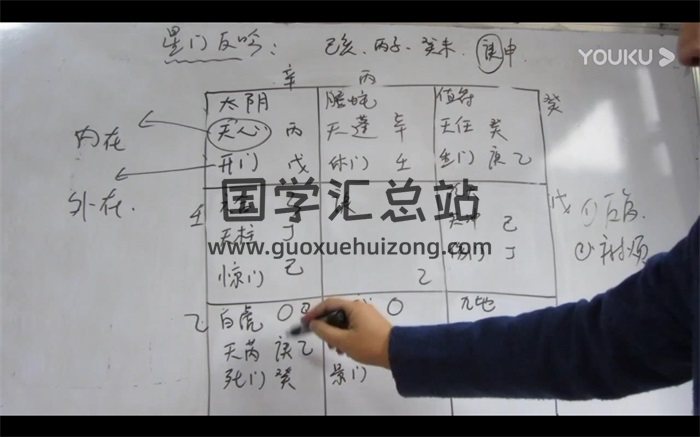 YOUKU
星门反吟: 己亥、丙子、癸未、庚申
辛 丙 癸
太阴 螣蛇 值符
天心 丙 天蓬 辛 天任 癸
开门 戊 休门 壬 生门 庚乙
内在
外在
国学汇总站
www.guoxuehuizong.com
壬 戊
天柱 丁 己
惊门 己 丁
乙
①反复
②
乙 白虎 〇 〇 九地
天芮 庚乙
死门 癸 景门